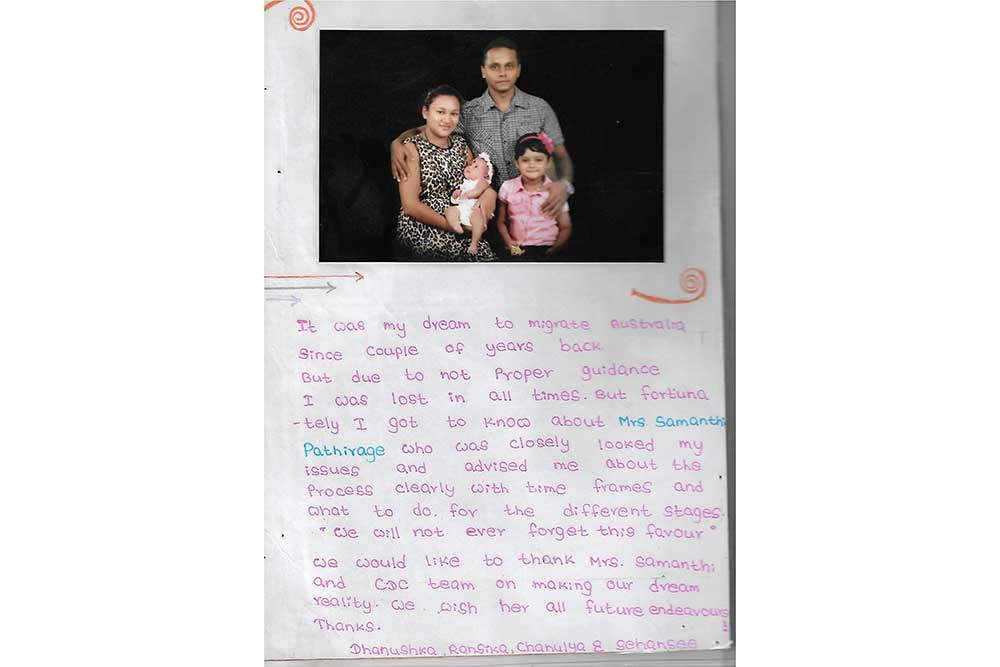 It was my dream to migrate Australia
Since couple of years back
But due to not Proper guidance
I was lost in all times. But fortuna
-tely I got to know about Mrs. Samanthi
Pathirage who was closely looked my
issues and advised me about the
Process clearly with time frames and
what to do. for the different stages.
"We will not ever forget this favour"
We would like to thank Mrs. Samanthi
and CDC team on making our dream
reality. We wish her all future endeavours!
Thanks.
Dhanushka, Ransika, Chanulya & Sehansee